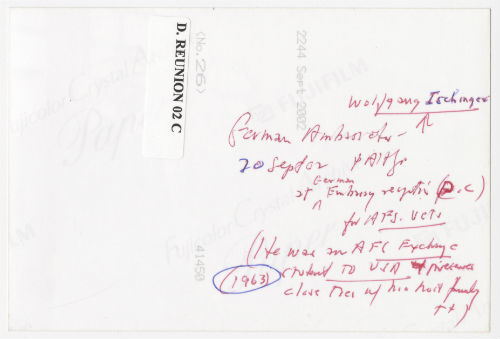 D. REUNION 02 C
(No. 26)
2244 Sept 2002
41450
Fujicolor Crystal Archive
Paper
FUJIFILM
Wolfgang Ischinger
German Ambassador -
20 Septor
at German Embassy reception (D.C)
for AFS. Vets
(He was an AFS Exchange
(1963) student TO USA
close ties w/ his host family